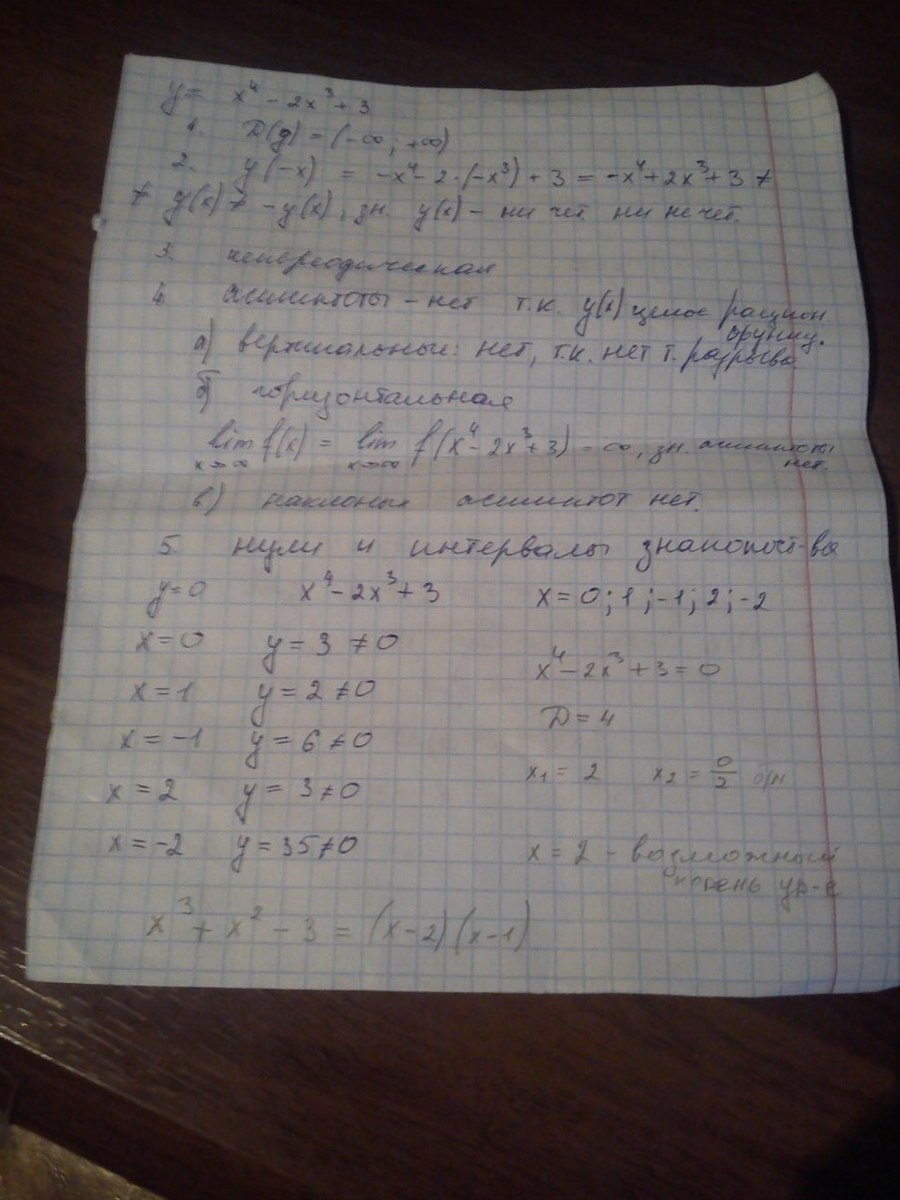 y = x⁴ - 2x³ + 3
1. D(y) = (-∞; +∞)
2. y(-x) = -x⁴ - 2·(-x³) + 3 = -x⁴ + 2x³ + 3 ≠
≠ y(x) ≠ -y(x), зн. y(x) - ни чет ни нечет.
3. непереодическая
4. асимптоты - нет т.к. y(x) целое рацион. функц.
а) вертикальные: нет, т.к. нет т. разрыва
б) горизонтальная
lim f(x) = lim f(x⁴ - 2x³ + 3) = ∞, зн. асимптоты нет.
x→∞ x→∞
в) наклоных асимптот нет.
5 нули и интервалы знакопост-ва
y=0 x⁴ - 2x³ + 3 x = 0; 1; -1; 2; -2
x=0 y = 3 ≠ 0
x⁴ - 2x³ + 3 = 0
x = 1 y = 2 ≠ 0
D = 4
x = -1 y = 6 ≠ 0
x₁ = 2 x₂ = 0/2
x = 2 y = 3 ≠ 0
x = -2 y = 35 ≠ 0
x = 2 - возможный корень ур-е
x³ + x² - 3 = (x-2)(x-1)